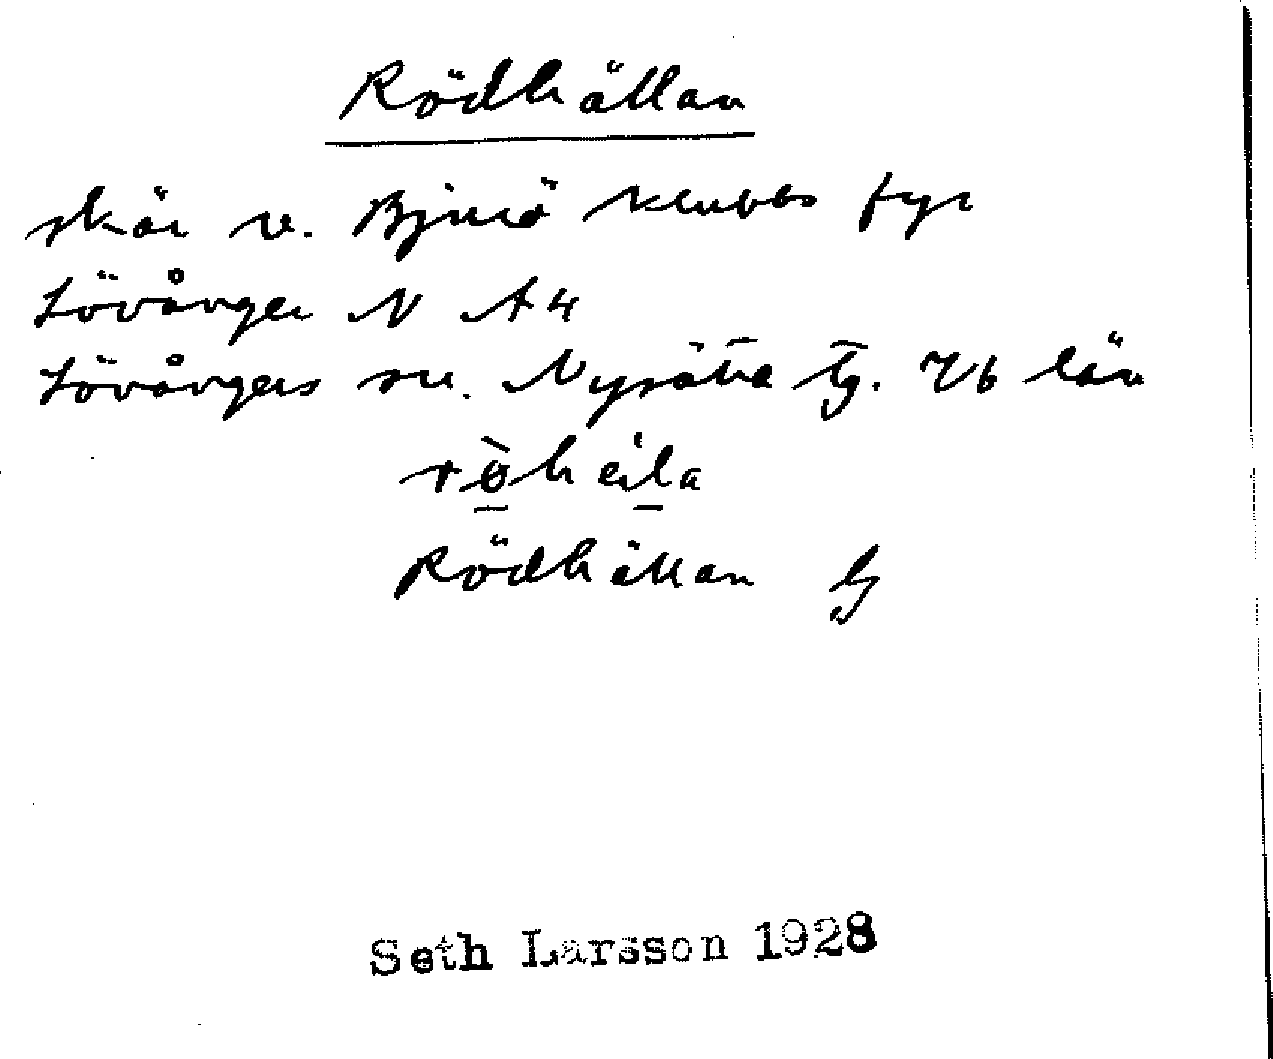 Rödhällan
skär v. Bjurö klubbs fyr
Lövånger N A4
Lövångers sn. Nysätra tg. Vb län
Rödhällan
Seth Larsson 1928